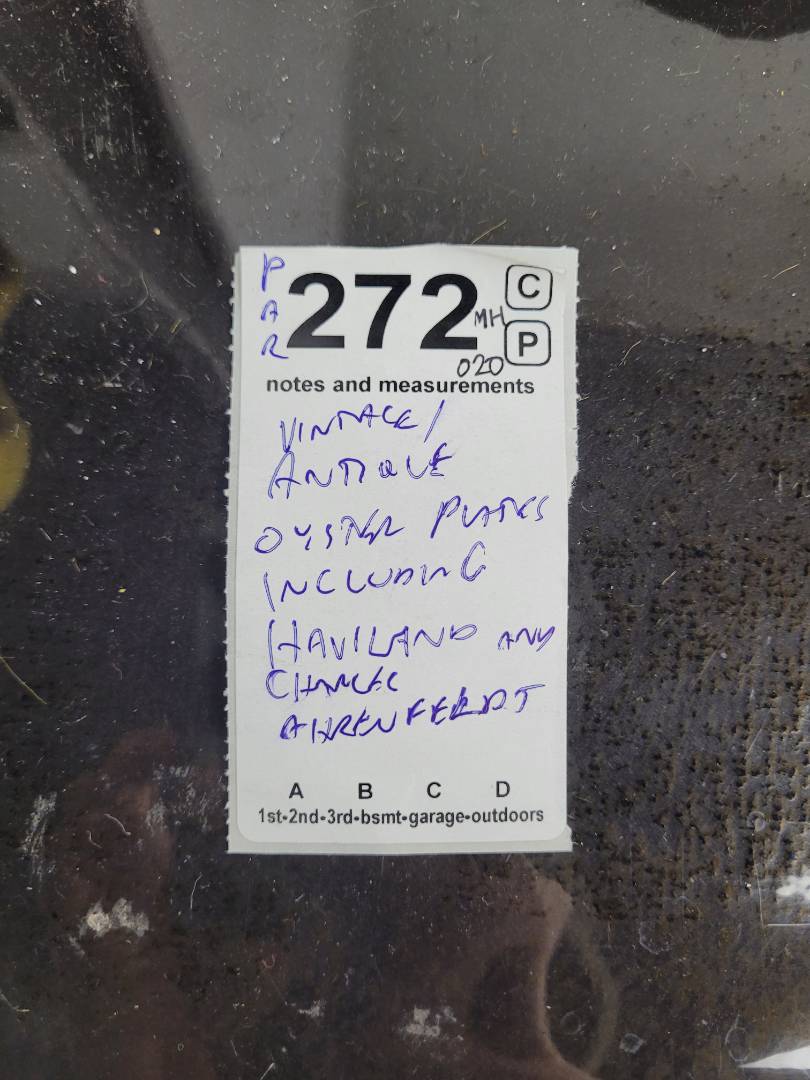 PAR
272
C
MH
P
020
notes and measurements
VINTAGE/
ANTIQUE
OYSTER PLATES
INCLUDING
HAVILAND AND
CHARLES
AHRENFELDT
A B C D
1st-2nd-3rd-bsmt-garage-outdoors